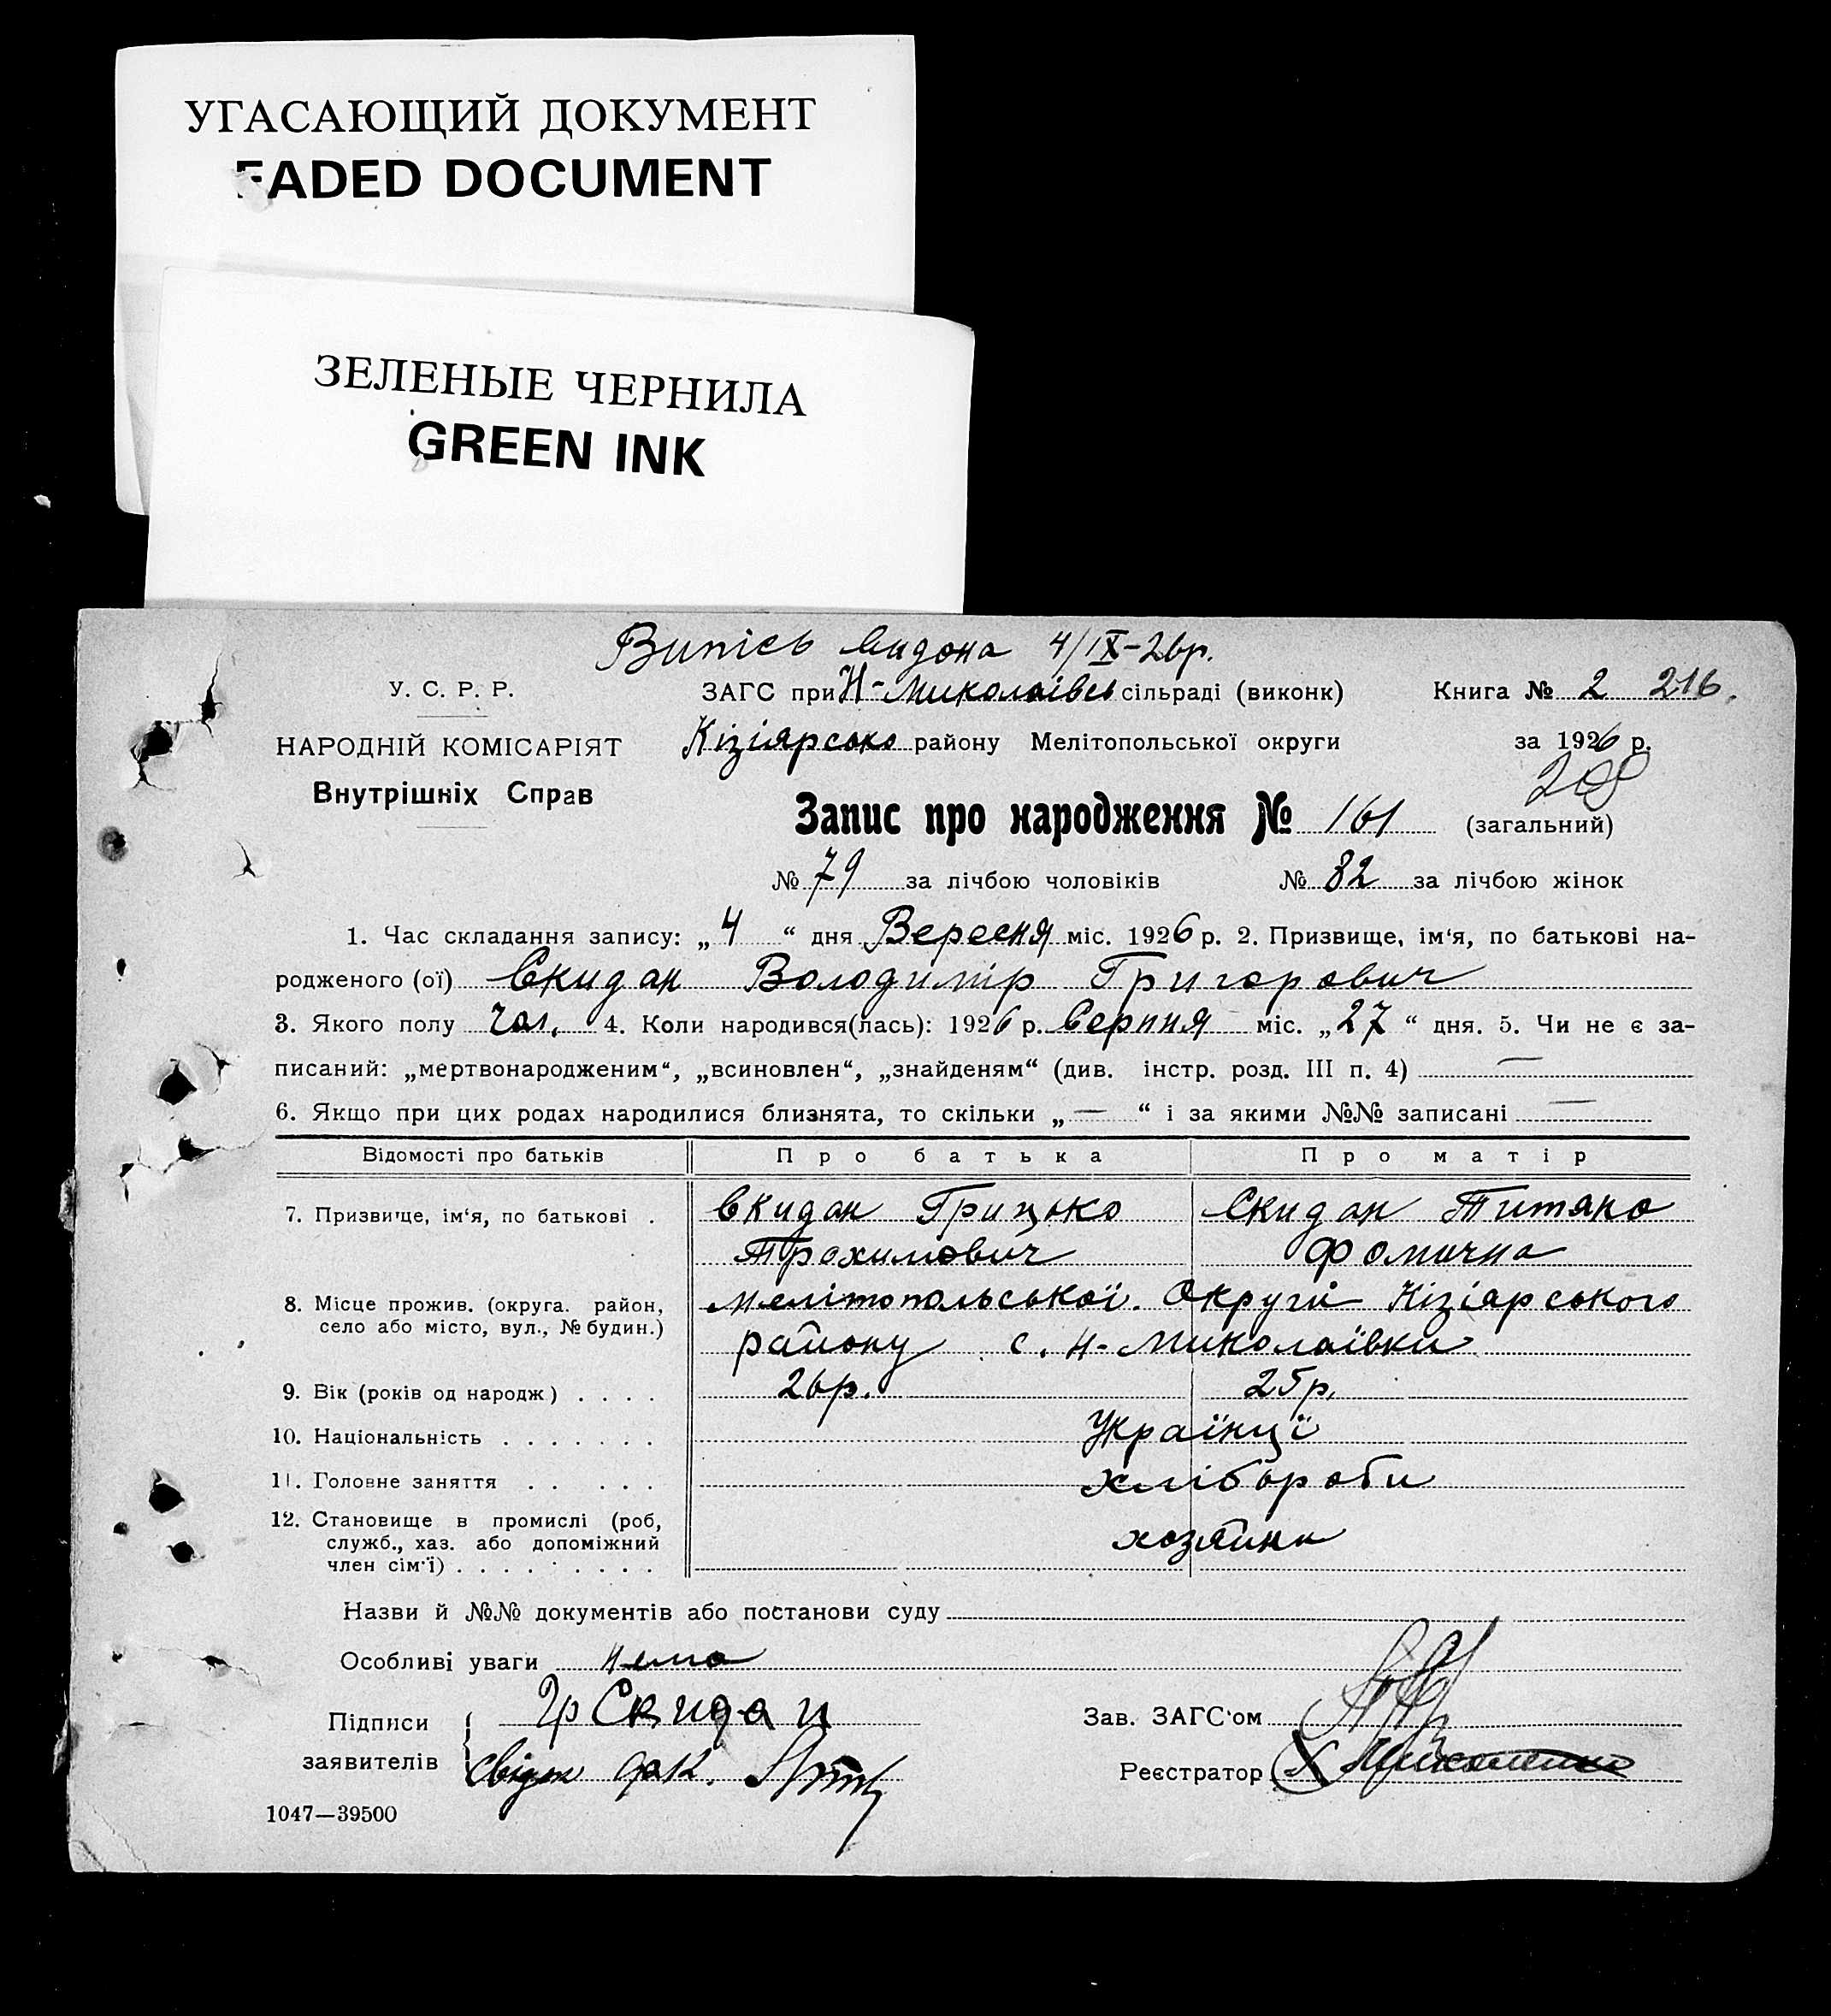 УГАСАЮЩИЙ ДОКУМЕНТ
FADED DOCUMENT
ЗЕЛЕНЫЕ ЧЕРНИЛА
GREEN INK
Випісь видона 4/IX-26р.
У. С. Р. Р.
ЗАГС при Н-Миколаівсь сільраді (виконк)
Книга № 2 216.
НАРОДНІЙ КОМІСАРІЯТ
Кізіярсько району Мелітопольської округи
за 1926 р.
Внутрішніх Справ
208
Запис про народження № 161 (загальний)
№ 79 за лічбою чоловіків № 82 за лічбою жінок
1. Час складання запису: „4“ дня Вересня міс. 1926 р. 2. Призвище, ім‘я, по батькові на-
родженого (ої) Скидан Володимір Григорович
3. Якого полу чол. 4. Коли народився(лась): 1926 р. Серпня міс. „27“ дня. 5. Чи не є за-
писаний: „мертвонародженим“, „всиновлен“, „знайденям“ (див. інстр. розд. III п. 4) —
6. Якщо при цих родах народилися близнята, то скільки „—“ і за якими №№ записані —
Відомості про батьків Про батька Про матір
7. Призвище, ім‘я, по батькові . Скидан Грицько Скидан Титяно
Трохимович Фомична
8. Місце прожив. (округа. район, Мелітопольської. Округи Кізіярського
село або місто, вул., № будин.) району с. Н-Миколаївки
9. Вік (років од народж) . . . . 26р. 25р.
10. Національність . . . . . . . Українці
11. Головне заняття . . . . . Хлібороби
12. Становище в промислі (роб,
служб., хаз. або допоміжний хозяйни
член сім‘ї) . . . . . . . . .
Назви й №№ документів або постанови суду
Особливі уваги нема
Підписи Гр Скидан
Зав. ЗАГС‘ом
заявителів Свідок
Реєстратор
1047—39500